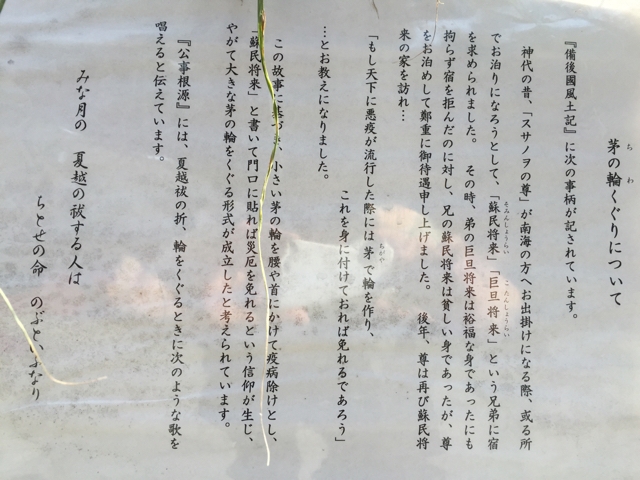 茅の輪くぐりについて
『備後國風土記』に次の事柄が記されています。
神代の昔、「スサノヲの尊」が南海の方へお出掛けになる際、或る所
でお泊りになろうとして、「蘇民将来」「巨旦将来」という兄弟に宿
を求められました。　その時、弟の巨旦将来は裕福な身であったにも
拘らず宿を拒んだのに対し、兄の蘇民将来は貧しい身であったが、尊
をお泊めして鄭重に御待遇申し上げました。　後年、尊は再び蘇民将
来の家を訪れ…
「もし天下に悪疫が流行した際には茅で輪を作り、
これを身に付けておれば免れるであろう」
…とお教えになりました。
この故事に基づき、小さい茅の輪を腰や首にかけて疫病除けとし、
「蘇民将来」と書いて門口に貼れば災厄を免れるという信仰が生じ、
やがて大きな茅の輪をくぐる形式が成立したと考えられています。
『公事根源』には、夏越祓の折、輪をくぐるときに次のような歌を
唱えると伝えています。
みな月の　夏越の祓する人は
ちとせの命　のぶといふなり